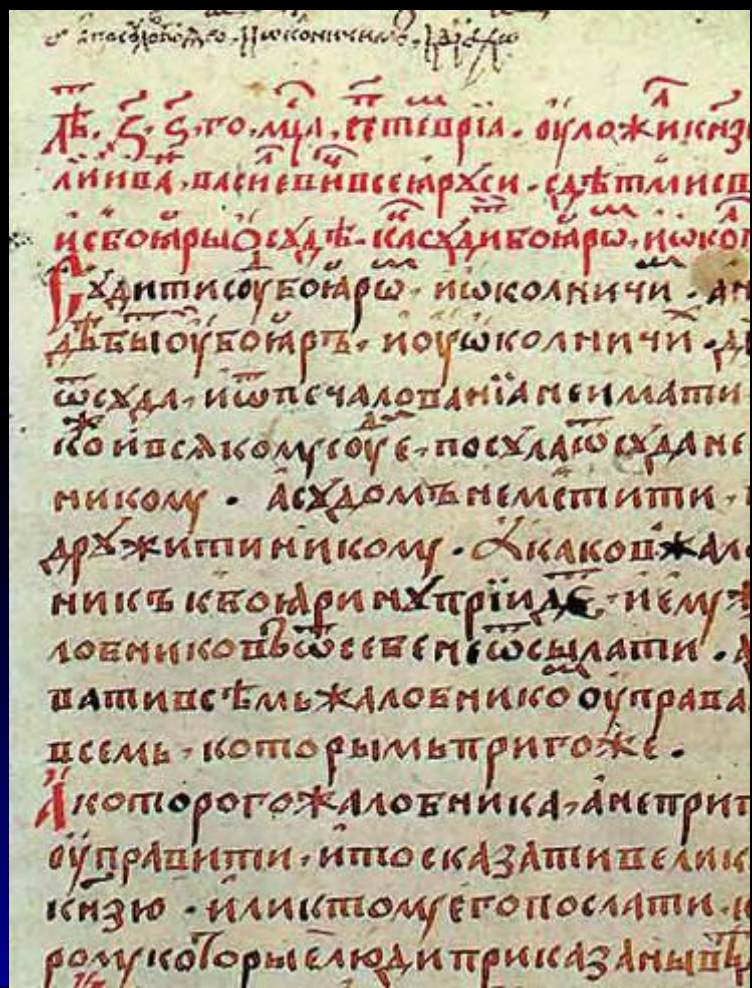 лѣ҇т. ҂ꙅ. ꙅ. го. мцⷭ҇а. сеⷫ҇теврїа. оуложиⷧ҇ кнзⷤ҇
лиⷦ҇ Иваⷩ҇. васиⷧ҇евиⷱ҇ всеꙗ рꙋси. с дѣтми св
и с боꙗры ѡ сꙋдѣ. каⷦ҇ сꙋдити боꙗроⷨ. и ѡкоⷧ
Сꙋдити сꙋⷣ боꙗроⷨ. и ѡколничиⷨ. а н
дѣ быти оу боꙗръ. и оу ѡколничиⷯ. д
ѿ сꙋда. и ѿ печалованїа не имати
коⷤ и всякому соудїе. посула ѿ сꙋда не
никому. а сꙋдомъ не мстити.
дрꙋжити никому. А каков жало
никъ к боꙗринꙋ прїидеⷮ. и ему ж
лобниковъ ѿ себе не ѿсылати. а
вати всѣмь жалобникоⷨ оуправа
всемь. которымь пригоже.
А которого жалобника. а не приг
оуправити. и то сказати велик
кнзю. или к тому его послати. к
рому которые люди приказаны вѣ